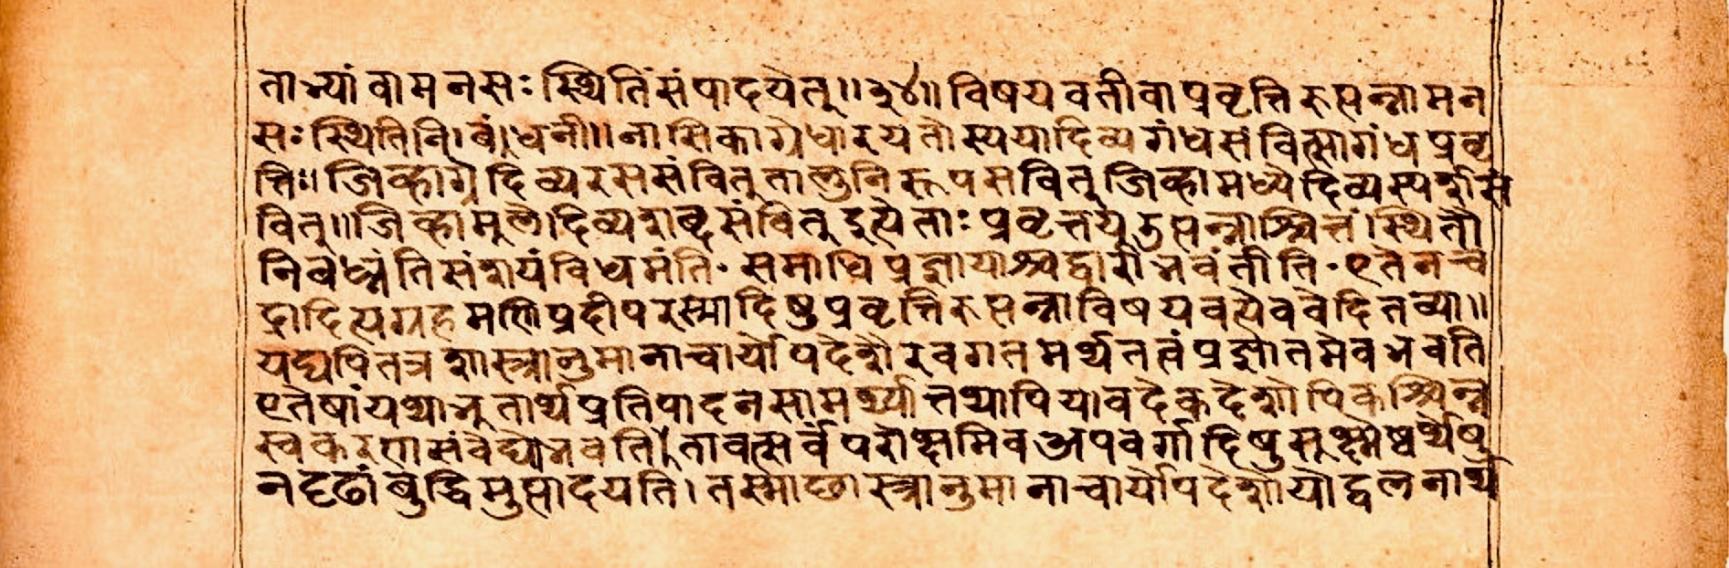 ताभ्यां वा मनसः स्थितिं संपादयेत् ॥ ३४ ॥ विषयवती वा प्रवृत्तिरुत्पन्ना मन
सः स्थितिनिबंधनी ॥ नासिकाग्रे धारयतोस्य या दिव्यगंधसंवित्सा गंधप्रवृ
त्तिः ॥ जिव्हाग्रे दिव्यरससंवित् तालुनि रूपसंवित् जिव्हामध्ये दिव्यस्पर्शसं
वित् ॥ जिव्हामुले दिव्यशब्दसंवित् इत्येताः प्रवृत्तय उत्पन्नाश्चित्तं स्थितौ
निबध्नंति संशयं विधमंति · समाधिप्रज्ञायाश्च द्वारीभवंतीति · एतेन चं
द्रादित्यग्रहमणिप्रदीपरस्मादिषु प्रवृत्तिरुत्पन्ना विषयवत्येव वेदितव्या ॥
यद्यपि तत्र शास्त्रानुमानाचार्योपदेशैरवगतमर्थतत्वं प्रज्ञातमेव भवति
एतेषां यथानुतार्थप्रतिपादनसामर्थ्यात् तथापि यावदेकदेशोपि कश्चिन्न
स्वकरणसंवेद्यो भवति। तावत्सर्वं परोक्षमिव अपवर्गादिषु सुक्ष्मेष्वर्थेषु
न दृढां बुद्धिमुत्पादयति। तस्माछास्त्रानुमानाचार्योपदेशोयोद्वलनार्थ